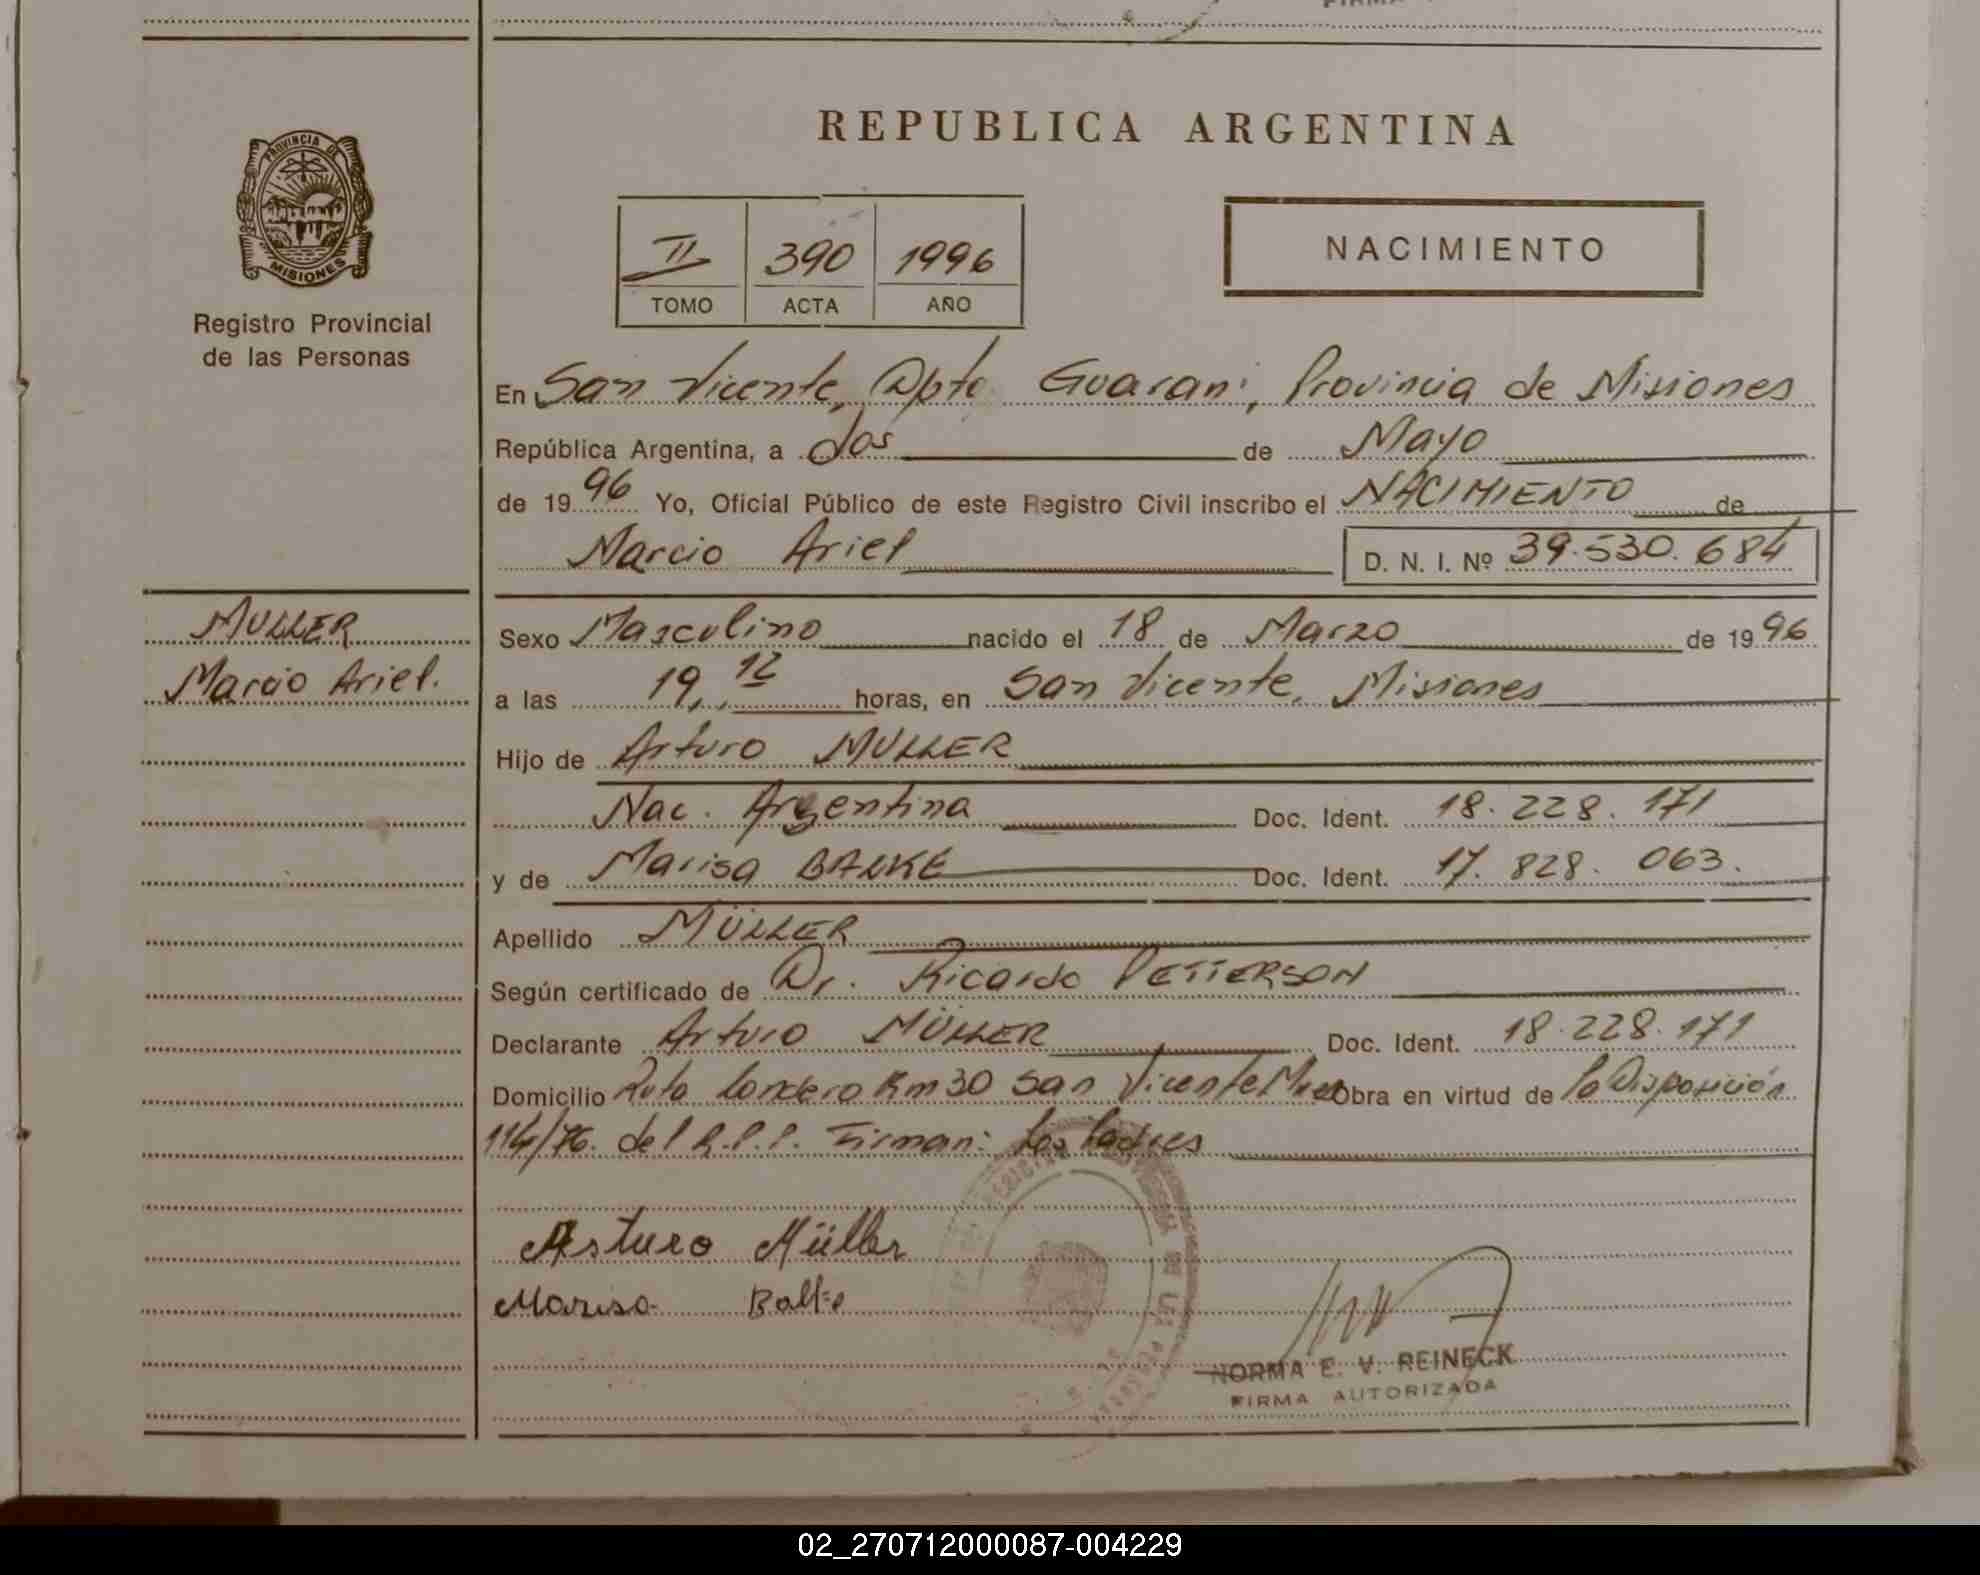 PROVINCIA DE
MISIONES
Registro Provincial
de las Personas
REPUBLICA ARGENTINA
II 390 1996
TOMO ACTA AÑO
NACIMIENTO
En San Vicente, Dpto Guarani, Provincia de Misiones
República Argentina, a dos de Mayo
de 1996 Yo, Oficial Público de este Registro Civil inscribo el NACIMIENTO de
Marcio Ariel D. N. I. Nº 39.530.684
MULLER
Marcio Ariel.
Sexo Masculino nacido el 18 de Marzo de 1996
a las 19,12 horas, en San Vicente, Misiones
Hijo de Arturo MULLER
Nac. Argentina Doc. Ident. 18.228.171
y de Marisa BALKE Doc. Ident. 17.828.063.
Apellido MÜLLER
Según certificado de Dr. Ricardo PETTERSON
Declarante Arturo MÜLLER Doc. Ident. 18.228.171
Domicilio Ruta Km 30 San Vicente Obra en virtud de la Disposición
114/76. del R.P.P. Firman: Los Padres
Arturo Müller
Marisa Balke
NORMA E. V. REINECK
FIRMA AUTORIZADA
02_270712000087-004229